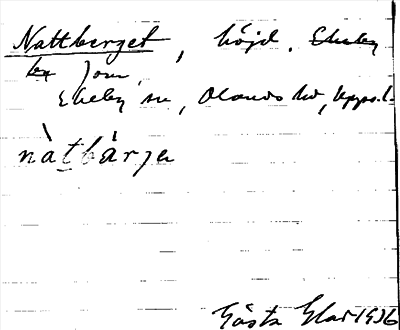 Nattberget, höjd. Ekeby
by Jom,
Ekeby sn, Olands hd, Upps.l.
nàtbàrje
Gösta Elar 1936